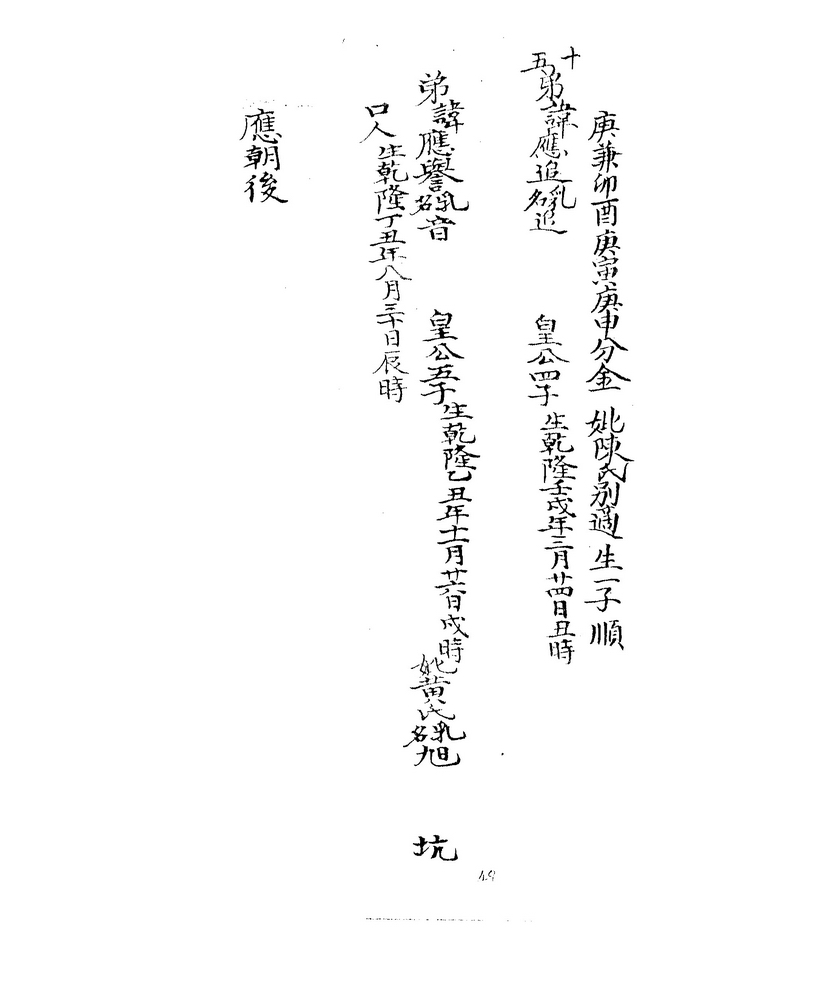 庚兼卯酉庚寅庚申分金 妣陳氏別適 生一子順
十五弟諱應追乳名追 皇公四子 生乾隆壬戌年三月廿四日丑時
弟諱應譽乳名音 皇公五子 生乾隆乙丑年十一月廿六日戌時 妣黃氏乳名旭 坑
口人 生乾隆丁丑年八月三十日辰時
應朝後
48